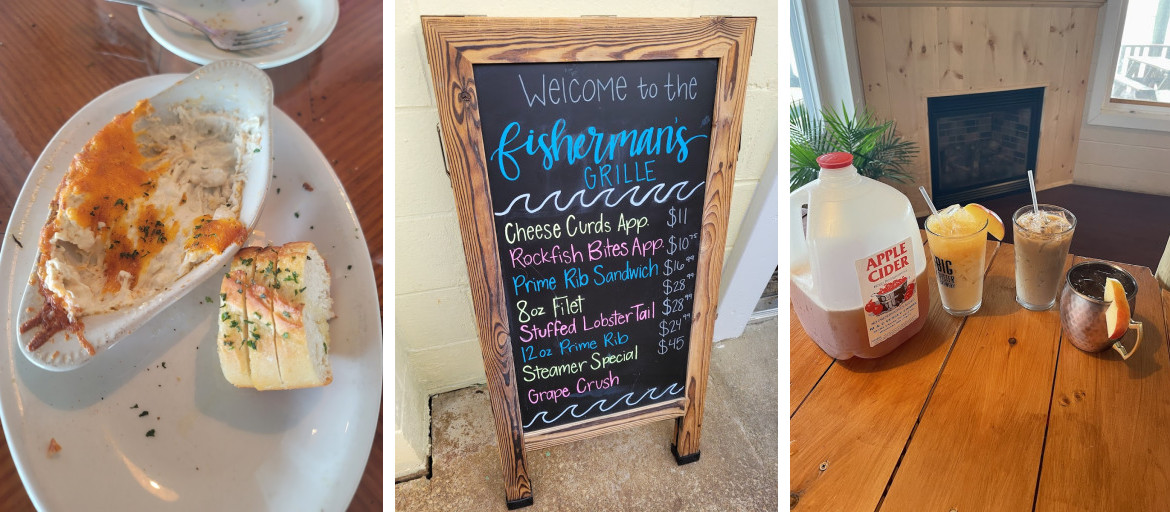 Welcome to the
fisherman's
GRILLE
Cheese Curds App. $11
Rockfish Bites App. $10⁷⁵
Prime Rib Sandwich $16⁹⁹
8oz Filet $28⁹⁹
Stuffed Lobster Tail $28⁹⁹
12oz Prime Rib $24⁹⁹
Steamer Special $45
Grape Crush
APPLE
CIDER
BIG